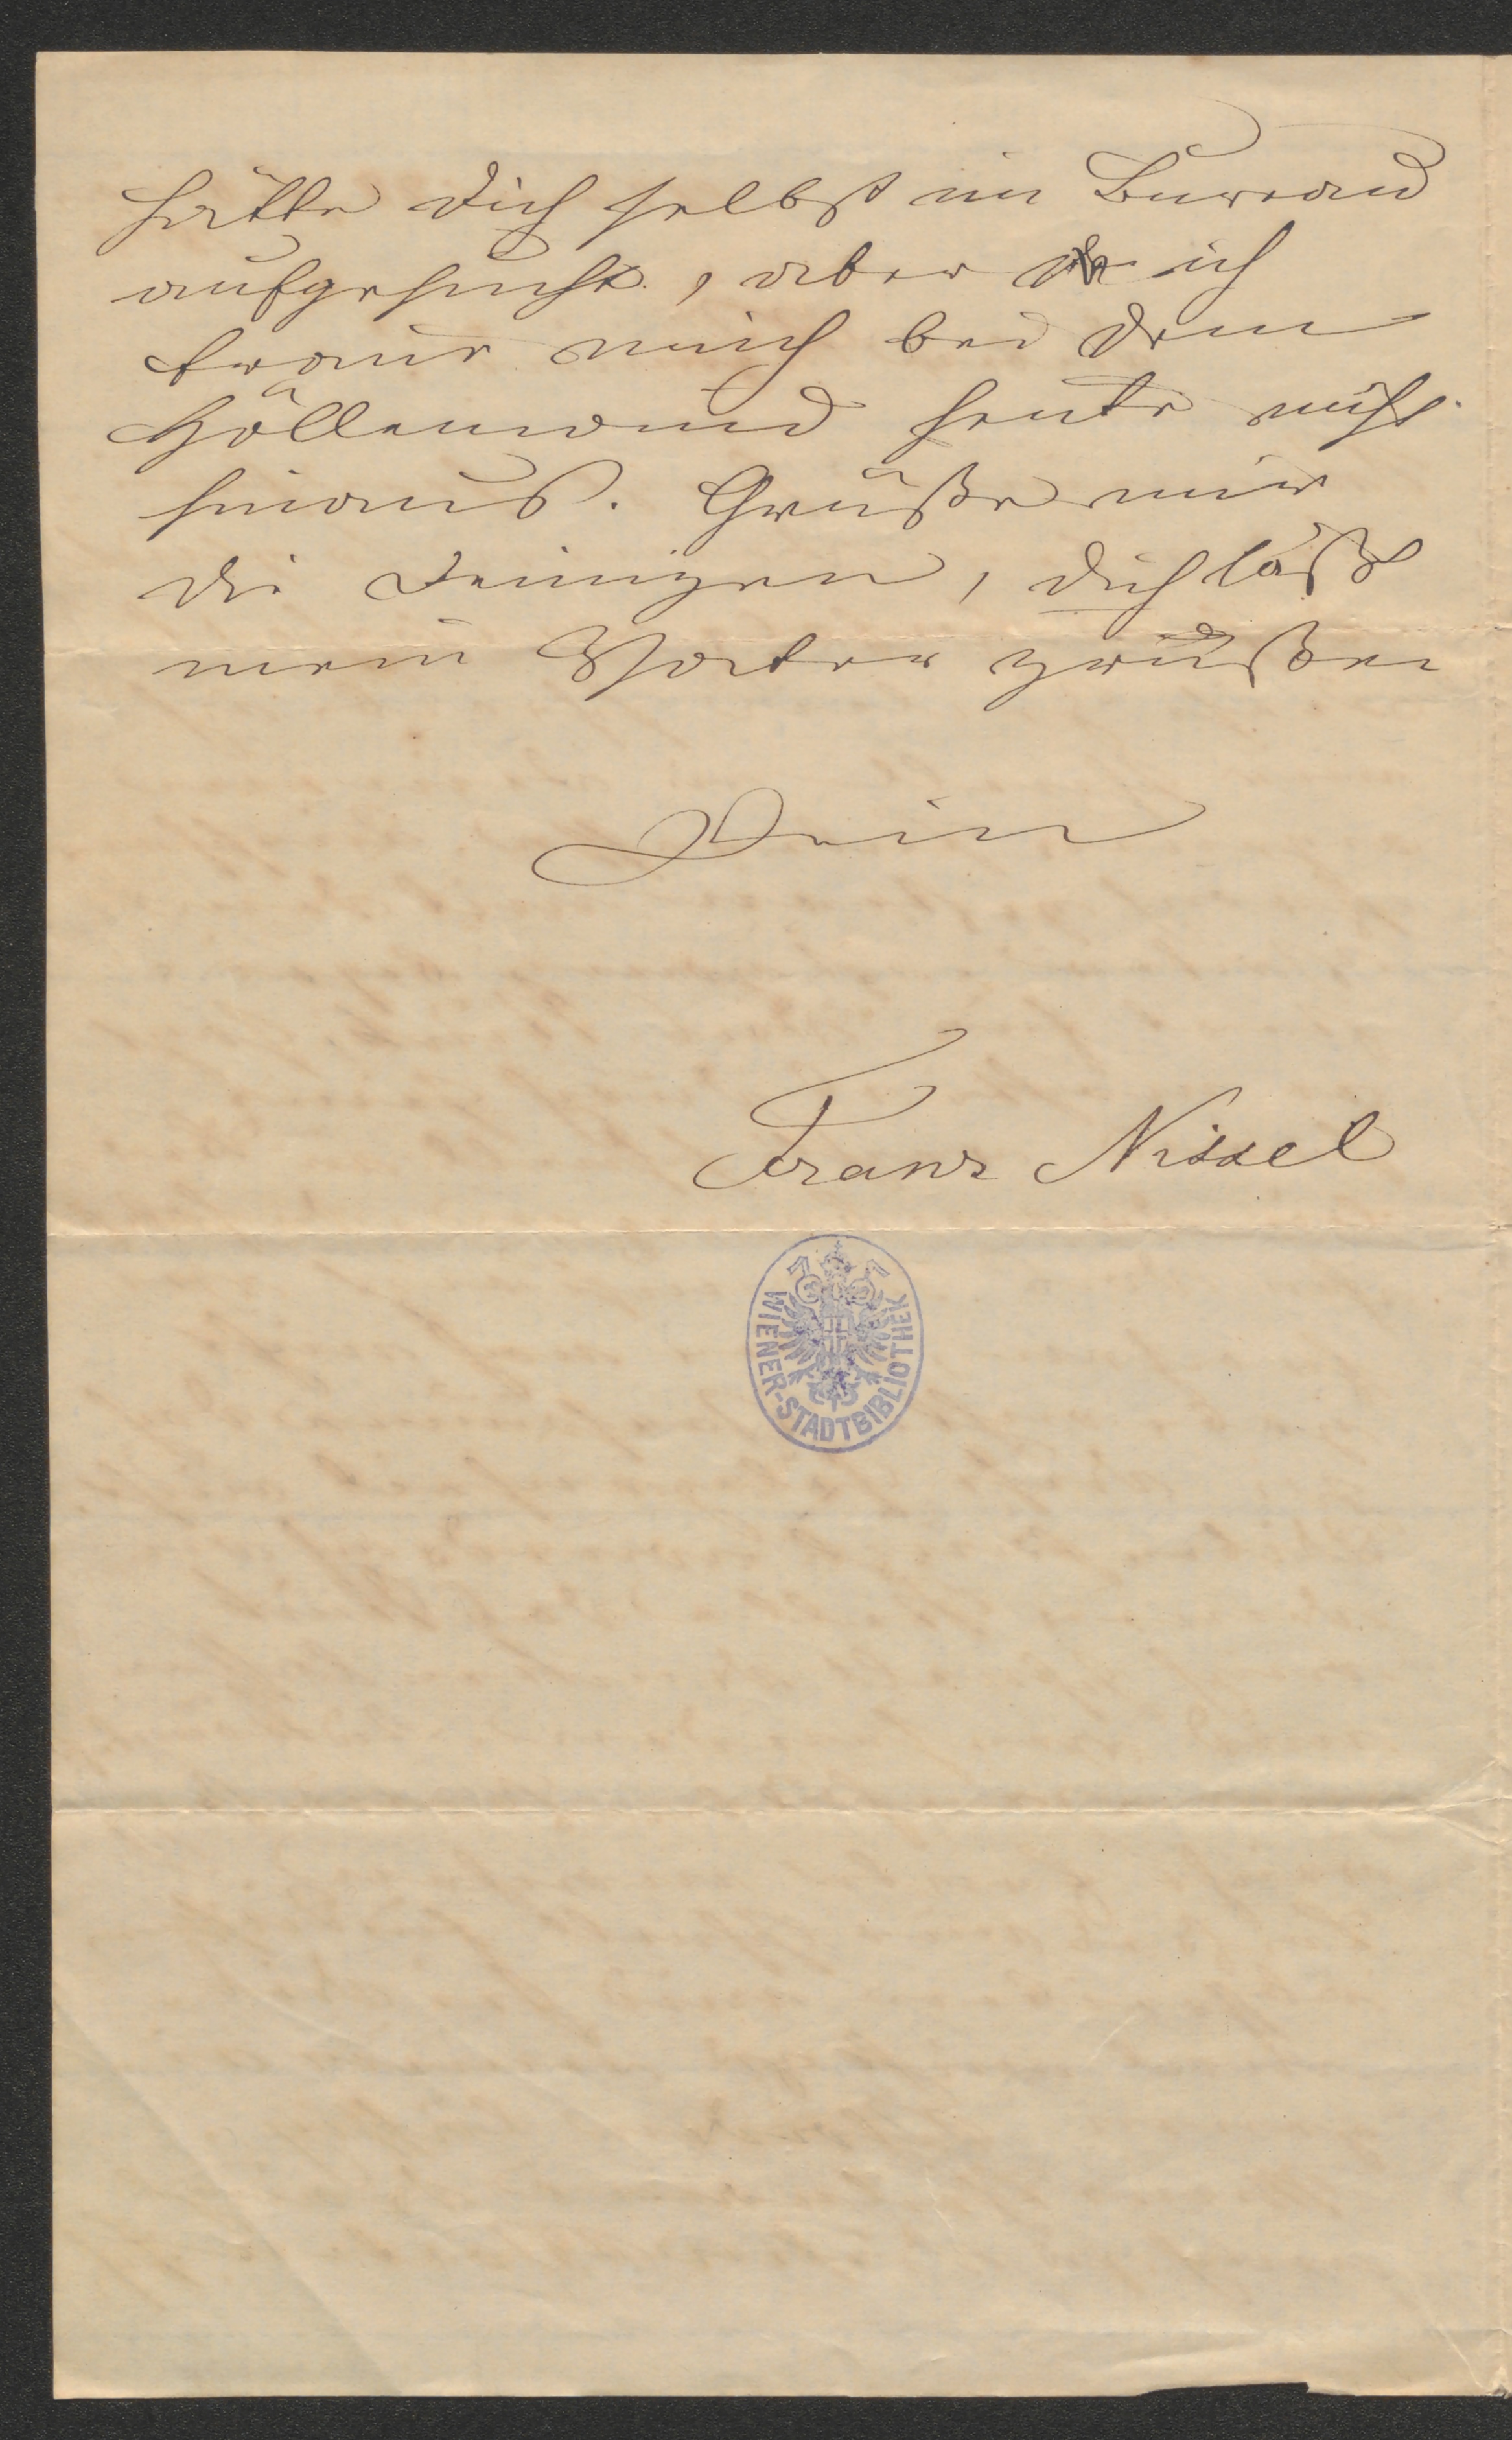 hätte Dich selbst im Bureau
aufgesucht, aber ich
traue mich bei dem
Höllenwind heute nicht
hinaus. Grüße mir
die Deinigen, Dich läßt
mein Vater grüßen
Dein
Franz Nissel
WIENER-STADTBIBLIOTHEK